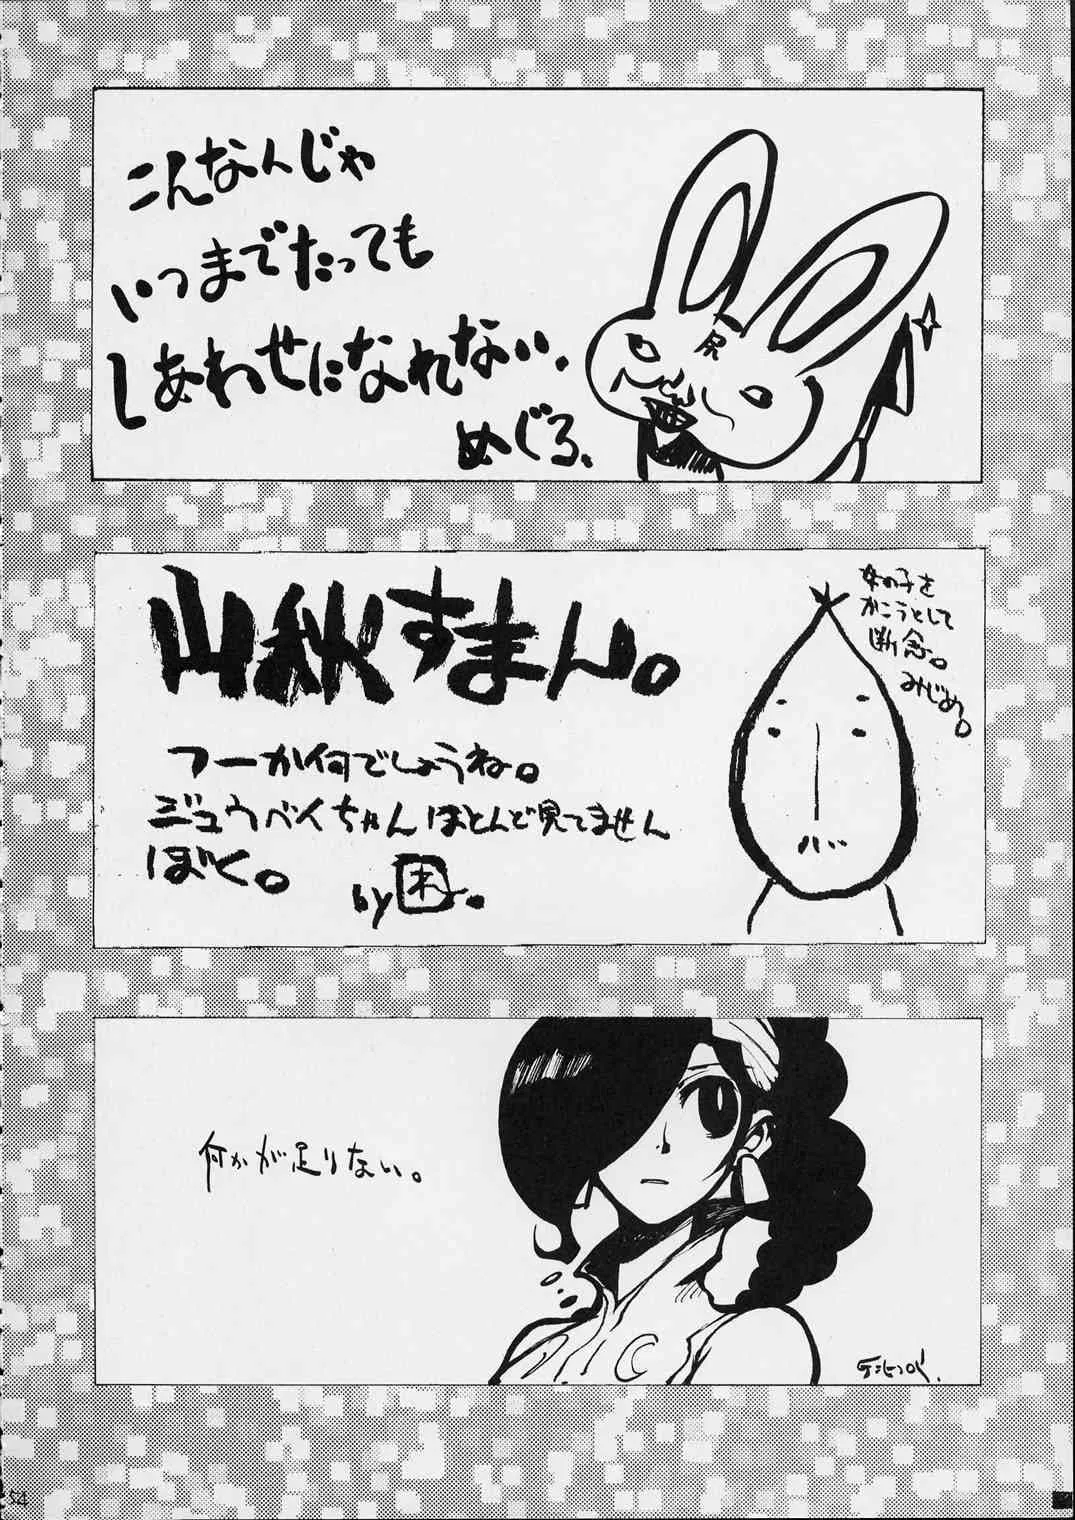 こんなんじゃ
いつまでたっても
しあわせになれない、
めぐろ、
尻
山秋すまん。
フーか何でしょうね。
ジュウベイちゃんほとんど見てません
ぼく。
by困。
女の子を
かこうとして
断念。
みじめ。
何かが足りない。
54